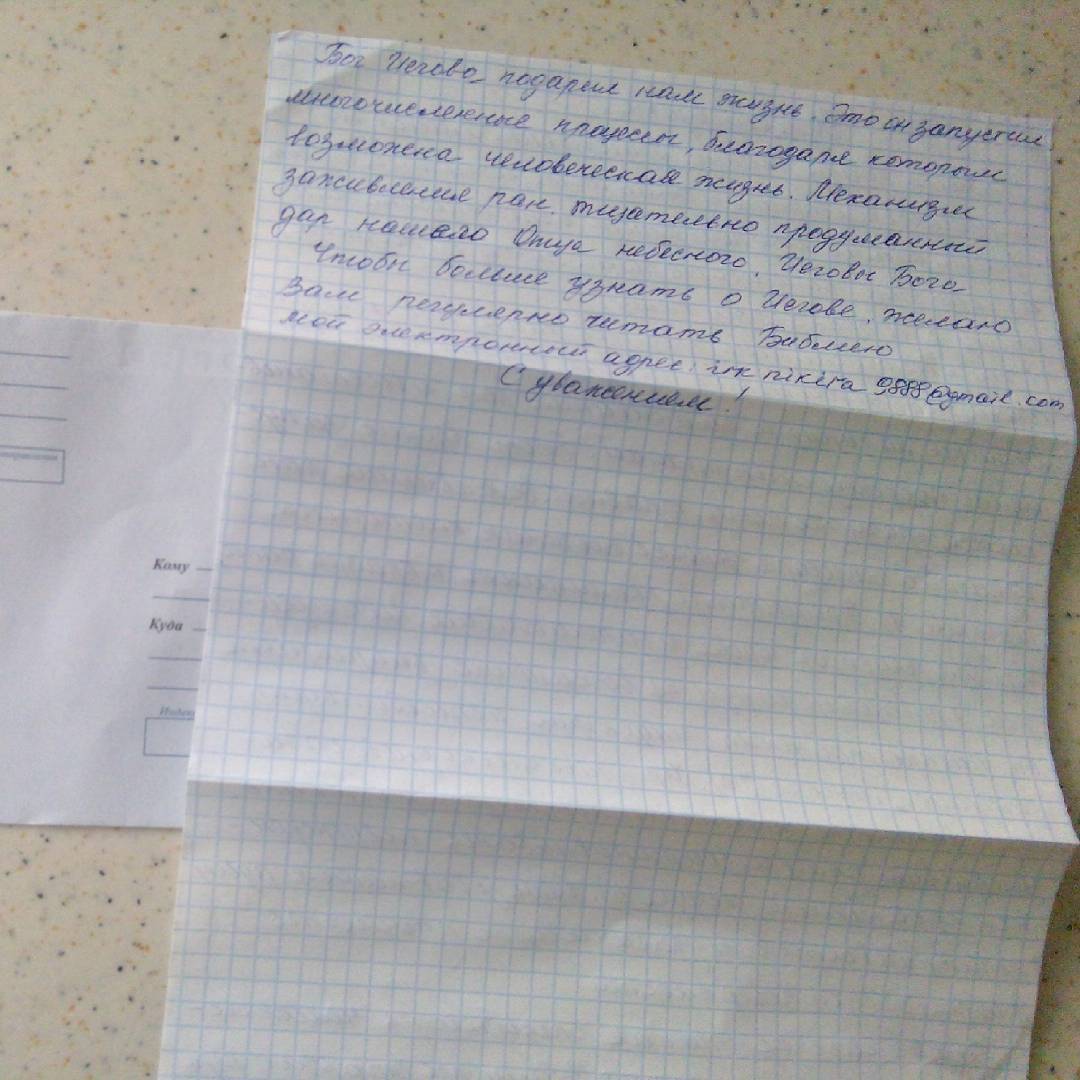 Бог Иегова подарил нам жизнь. Это он запустил
многочисленные процессы, благодаря которым
возможена человеческая жизнь. Механизм
заживления ран. тщательно продуманный
дар нашего Отца небесного. Иеговы Бога
Чтобы больше узнать о Иегове, желаю
Вам регулярно читать Библию
мой электронный адрес: irk nikita 9888@gmail.com
С уважением!
Кому
Куда